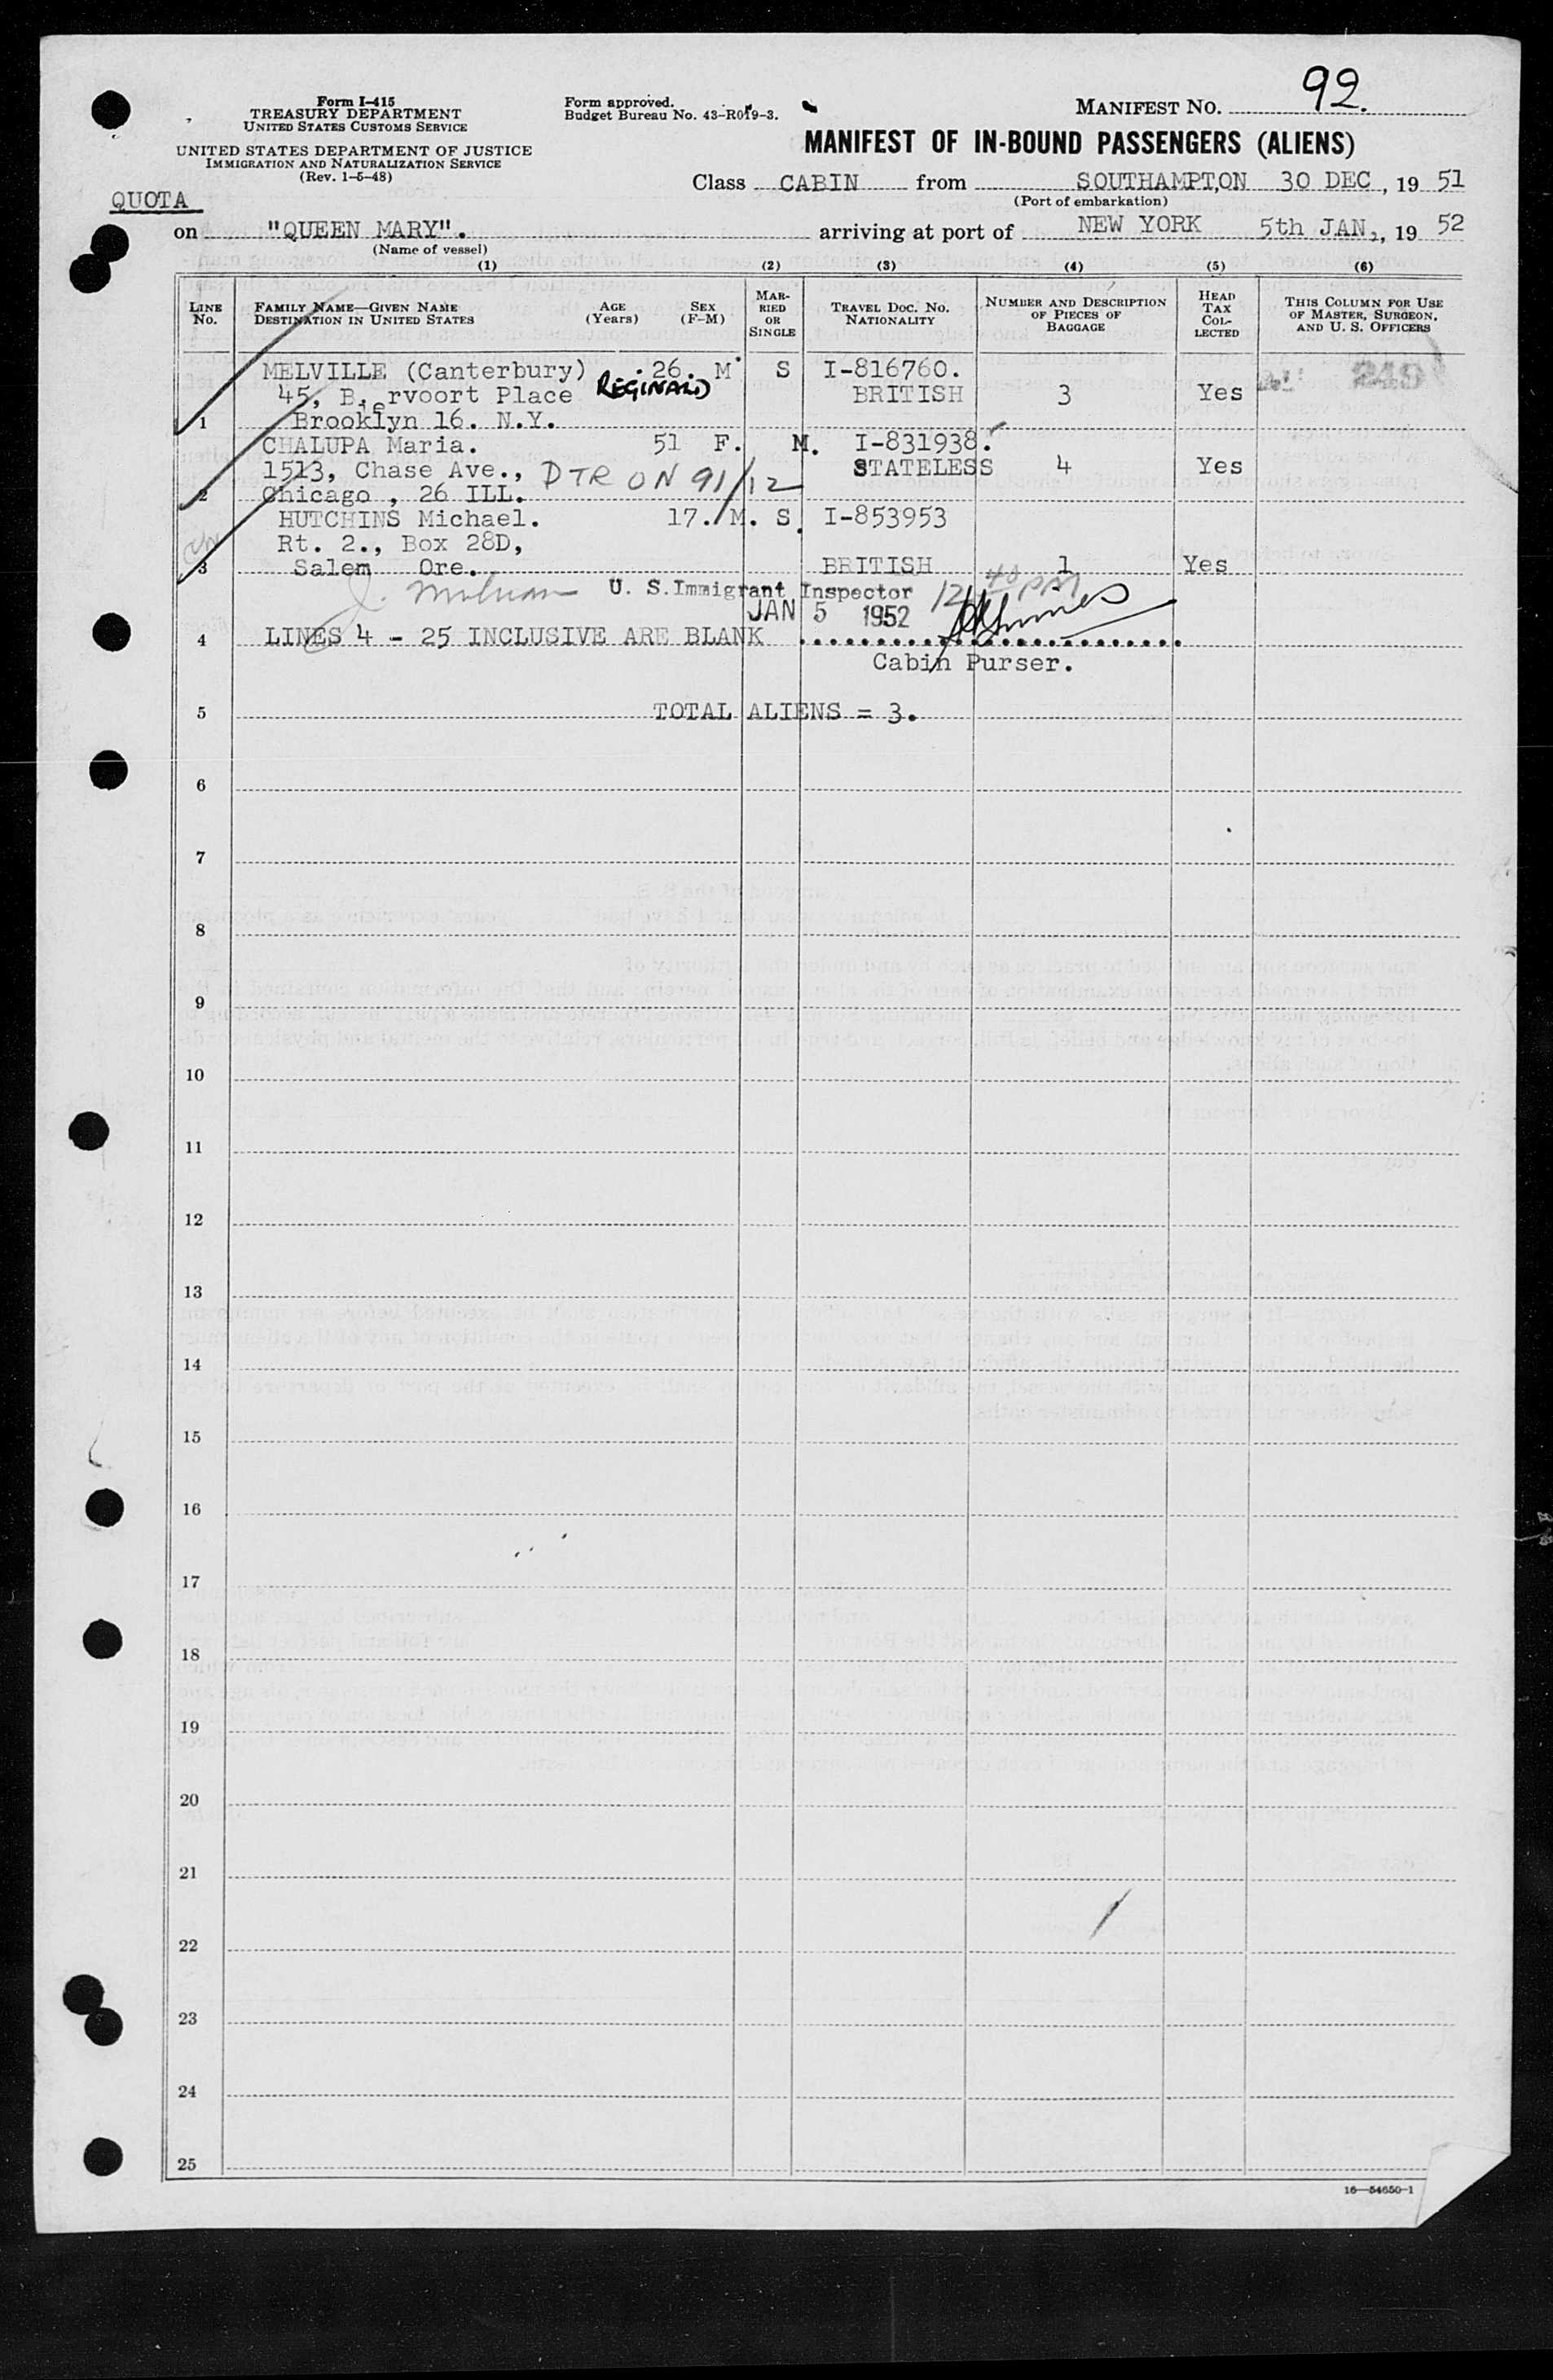 Form I-415
TREASURY DEPARTMENT
UNITED STATES CUSTOMS SERVICE
UNITED STATES DEPARTMENT OF JUSTICE
IMMIGRATION AND NATURALIZATION SERVICE
(Rev. 1-5-48)
Form approved.
Budget Bureau No. 43-R019-3.
MANIFEST NO. 92.
MANIFEST OF IN-BOUND PASSENGERS (ALIENS)
Class CABIN from SOUTHAMPTON 30 DEC, 19 51
(Port of embarkation)
QUOTA
on "QUEEN MARY". arriving at port of NEW YORK 5th JAN., 19 52
(Name of vessel)
(1) (2) (3) (4) (5) (6)
LINE No. FAMILY NAME—GIVEN NAME DESTINATION IN UNITED STATES AGE (Years) SEX (F-M) MARRIED OR SINGLE TRAVEL DOC. NO. NATIONALITY NUMBER AND DESCRIPTION OF PIECES OF BAGGAGE HEAD TAX COLLECTED THIS COLUMN FOR USE OF MASTER, SURGEON, AND U. S. OFFICERS
MELVILLE (Canterbury) 26. M S I-816760. 249
45, B.ervoort Place REGINALD BRITISH 3 Yes
1 Brooklyn 16. N.Y.
CHALUPA Maria. 51 F. M. I-831938.
1513, Chase Ave., DTR ON 91/12 STATELESS 4 Yes
2 Chicago , 26 ILL.
HUTCHINS Michael. 17. M. S. I-853953
Rt. 2., Box 28D,
3 Salem Ore. BRITISH 1 Yes
U. S. Immigrant Inspector 12 40 PM
JAN 5 1952
4 LINES 4 - 25 INCLUSIVE ARE BLANK
Cabin Purser.
5 TOTAL ALIENS = 3.
6
7
8
9
10
11
12
13
14
15
16
17
18
19
20
21
22
23
24
25
16—54650-1